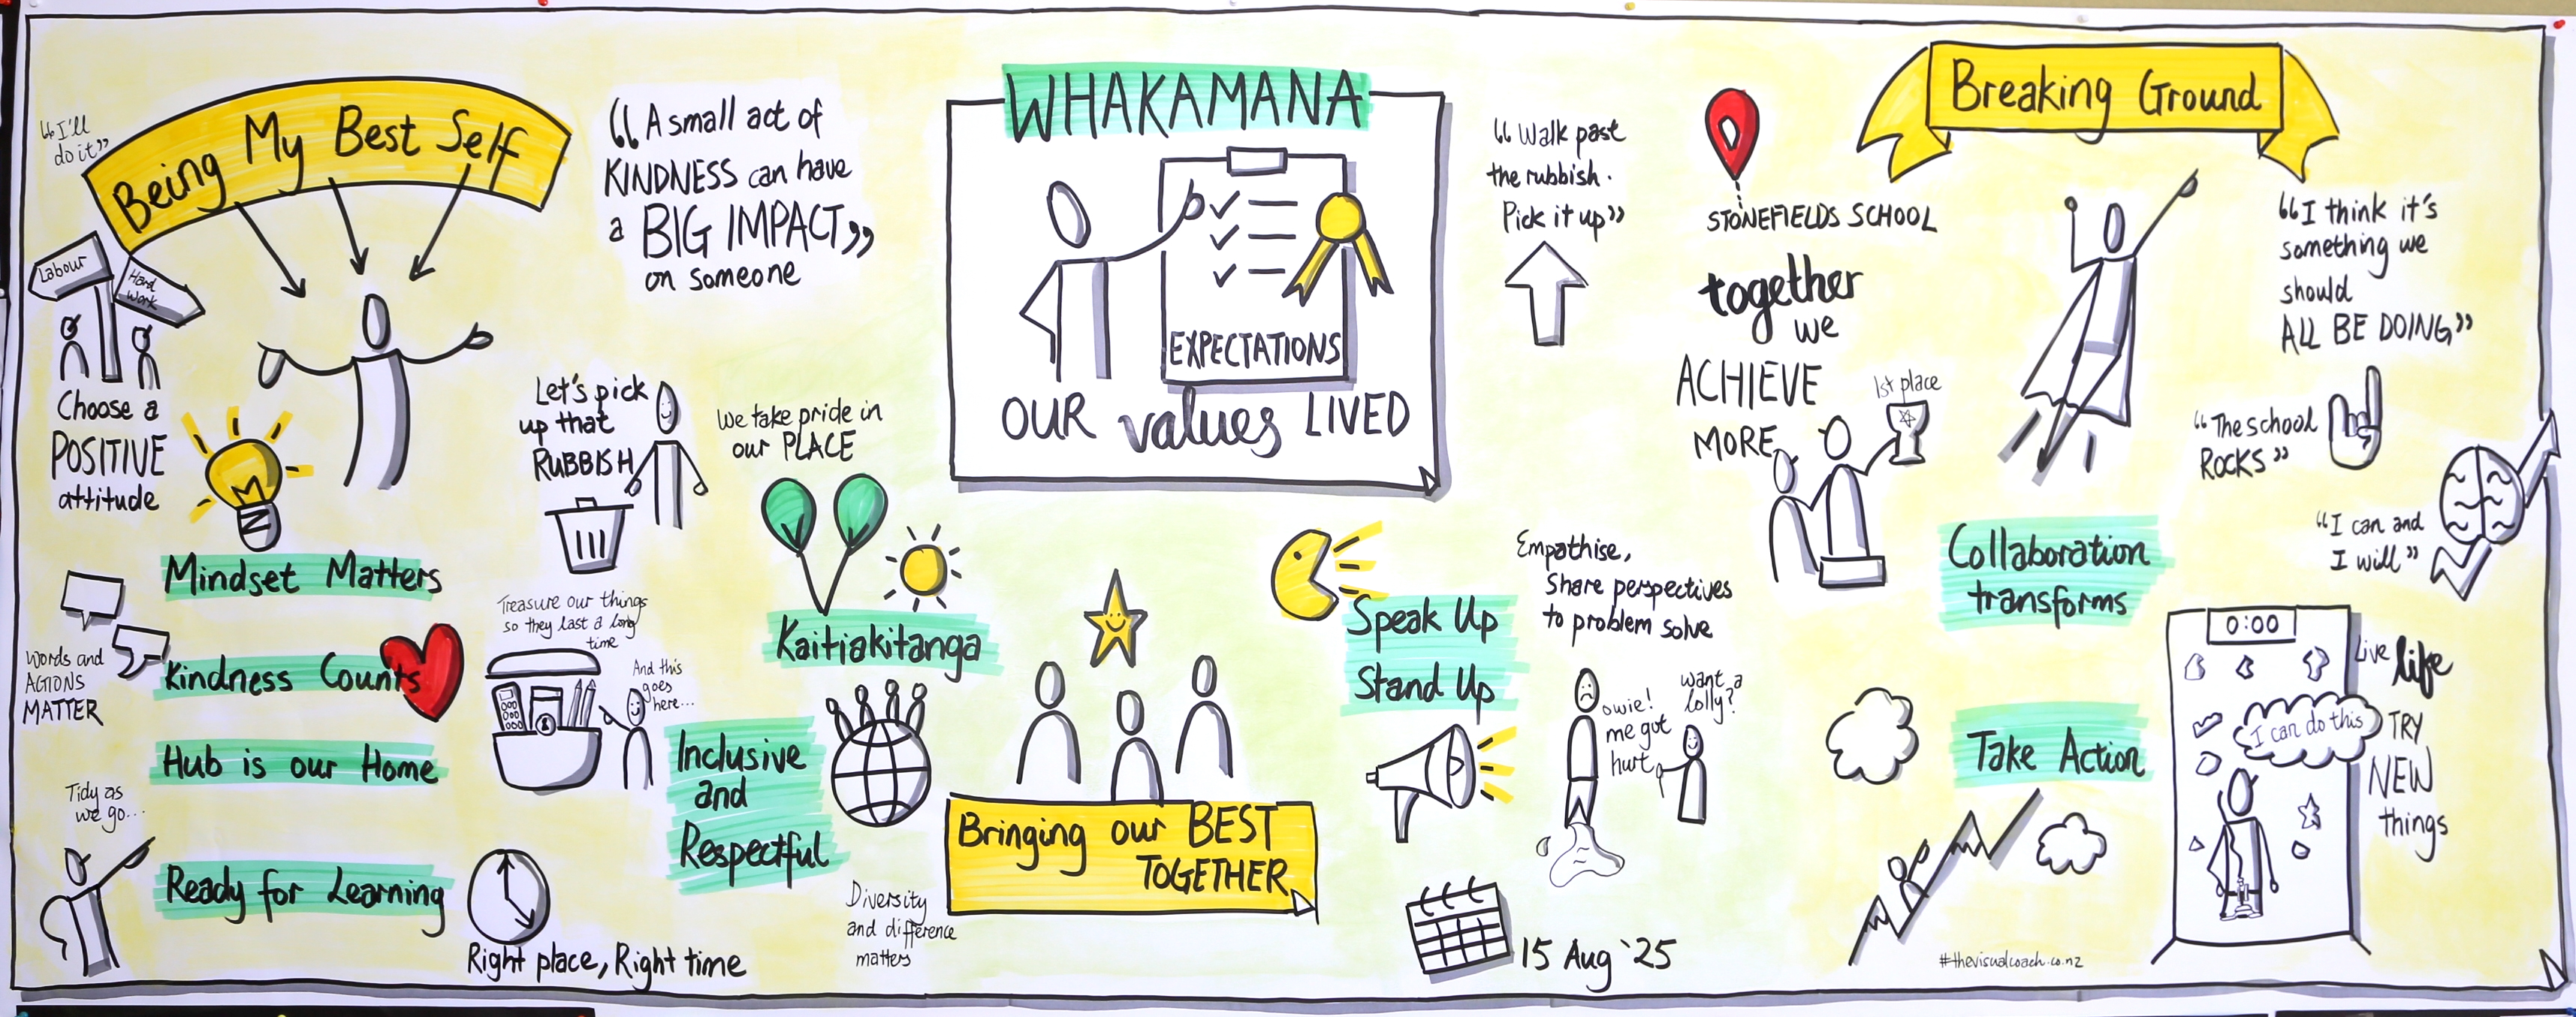 "I'll
do it"
Being My Best Self
Labour
Hard
Work
Choose a
POSITIVE
attitude
Mindset Matters
Words and
ACTIONS
MATTER
Kindness Counts
Hub is our Home
Tidy as
we go...
Ready for Learning
Right place, Right time
"A small act of
KINDNESS can have
a BIG IMPACT"
on someone
Let's pick
up that
RUBBISH
Treasure our things
so they last a long
time
And this
goes
here...
We take pride in
our PLACE
Kaitiakitanga
Inclusive
and
Respectful
Diversity
and difference
matters
WHAKAMANA
EXPECTATIONS
OUR values LIVED
Bringing our BEST
TOGETHER
"Walk past
the rubbish.
Pick it up"
Speak Up
Stand Up
Empathise,
Share perspectives
to problem solve
owie!
me got
hurt
want a
lolly?
15 Aug '25
STONEFIELDS SCHOOL
together
we
ACHIEVE
MORE
1st place
Breaking Ground
"I think it's
something we
should
ALL BE DOING"
"The school
ROCKS"
"I can and
I will"
Collaboration
transforms
Take Action
0:00
I can do this
Live life
TRY
NEW
things
#thevisualcoach.co.nz